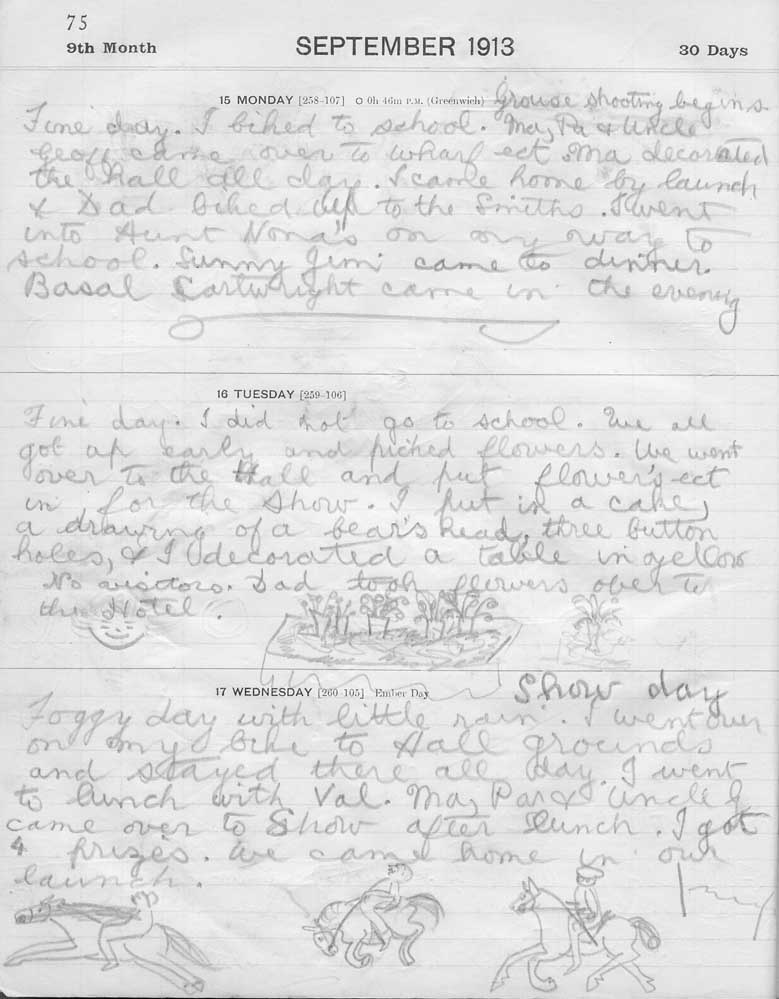 75
9th Month SEPTEMBER 1913 30 Days
15 MONDAY [258-107] O 0h 46m P.M. (Greenwich) Grouse shooting begins
Fine day. I biked to school. Ma, Pa & Uncle
Geoff came over to wharf ect Ma decorated
the hall all day. I came home by launch
& Dad biked up to the Smiths. I went
into Aunt Nona's on my way to
school. Sunny Jim came to dinner.
Basal Cartwright came in the evening
16 TUESDAY [259-106]
Fine day. I did not go to school. We all
got up early and picked flowers. We went
over to the Hall and put flower's ect
in for the Show. I put in a cake,
a drawing of a bear's head, three button
holes, & I decorated a table in yellow
No visitors. Dad took flowers over to
the Hotel.
17 WEDNESDAY [260-105] Ember Day Show day
Foggy day with little rain. I went over
on my bike to Hall grounds
and stayed there all day. I went
to lunch with Val. Ma, Par & Uncle G
came over to Show after lunch. I got
4 prizes. We came home in our
launch.